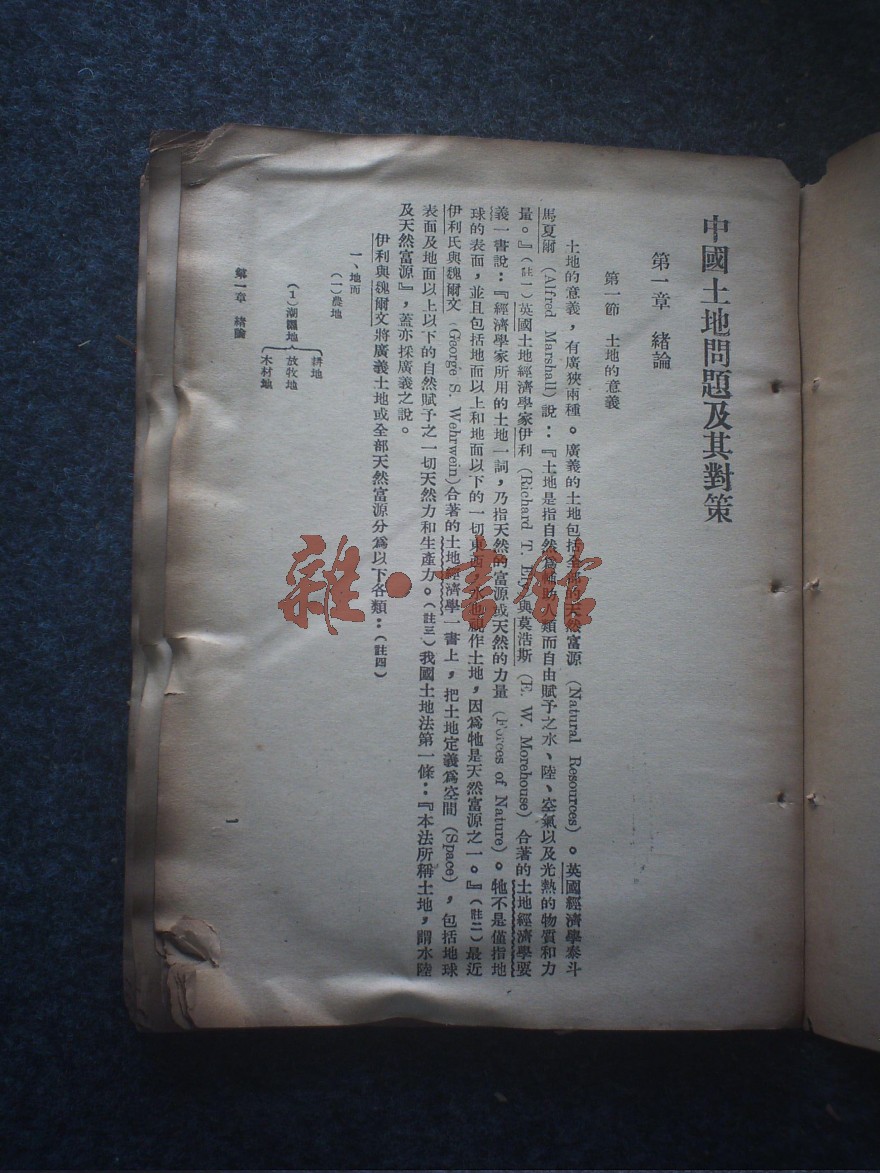 中國土地問題及其對策
第一章 緒論
第一節 土地的意義
土地的意義，有廣狹兩種。廣義的土地包括全部的天然富源 (Natural Resources)。英國經濟學泰斗
馬夏爾 (Alfred Marshall) 說：『土地是指自然爲補助人類而自由賦予之水、陸、空氣以及光熱的物質和力
量。』(註一) 英國土地經濟學家伊利 (Richard T. Ely) 與莫浩斯 (E. W. Morehouse) 合著的土地經濟學要
義一書說：『經濟學家所用的土地一詞，乃指天然的富源或天然的力量 (Forces of Nature)。牠不是僅指地
球的表面，並且包括地面以上和地面以下的一切東西，水也視作土地，因爲牠是天然富源之一。』(註二) 最近
伊利氏與魏爾文 (George S. Wehrwein) 合著的土地經濟學一書上，把土地定義爲空間 (Space)，包括地球
表面及地面以上以下的自然賦予之一切天然力和生產力。(註三) 我國土地法第一條：『本法所稱土地，謂水陸
及天然富源』，蓋亦採廣義之說。
伊利與魏爾文將廣義土地或全部天然富源分爲以下各類：(註四)
一、地面
(一) 農地
(1) 潮濕地
耕地
放牧地
木材地
第一章 緒論
1
雜·書館